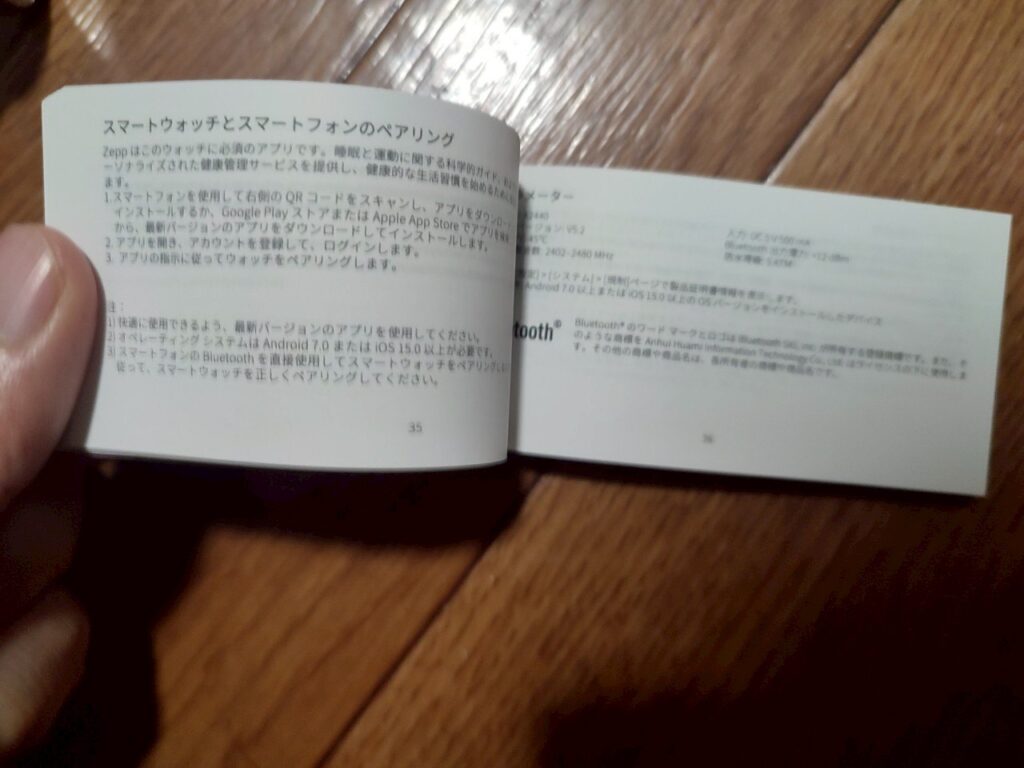 スマートウォッチとスマートフォンのペアリング
Zepp はこのウォッチに必須のアプリです。睡眠と運動に関する科学的ガイド、
ーソナライズされた健康管理サービスを提供し、健康的な生活習慣を始めるため
ます。
1.スマートフォンを使用して右側の QR コードをスキャンし、アプリをダウンロー
インストールするか、Google Play ストアまたは Apple App Store でアプリを
から、最新バージョンのアプリをダウンロードしてインストールします。
2. アプリを開き、アカウントを登録して、ログインします。
3. アプリの指示に従ってウォッチをペアリングします。
注：
1) 快適に使用できるよう、最新バージョンのアプリを使用してください。
2) オペレーティング システムは Android 7.0 または iOS 15.0 以上が必要です。
3) スマートフォンの Bluetooth を直接使用してスマートウォッチをペアリング
従って、スマートウォッチを正しくペアリングしてください。
35
メーター
2440
ージョン: V5.2
45℃
数: 2402–2480 MHz
入力: DC 5 V 500 mA
Bluetooth 出力電力: <12 dBm
防水等級: 5 ATM
定] > [システム] > [規制]ページで製品証明書情報を表示します。
Android 7.0 以上または iOS 15.0 以上の OS バージョンをインストールしたデバイス
tooth®
Bluetooth® のワード マークとロゴは Bluetooth SIG, Inc. が所有する登録商標です。また、そ
のような商標を Anhui Huami Information Technology Co., Ltd. はライセンスの下に使用しま
す。その他の商標や商品名は、各所有者の商標や商品名です。
36